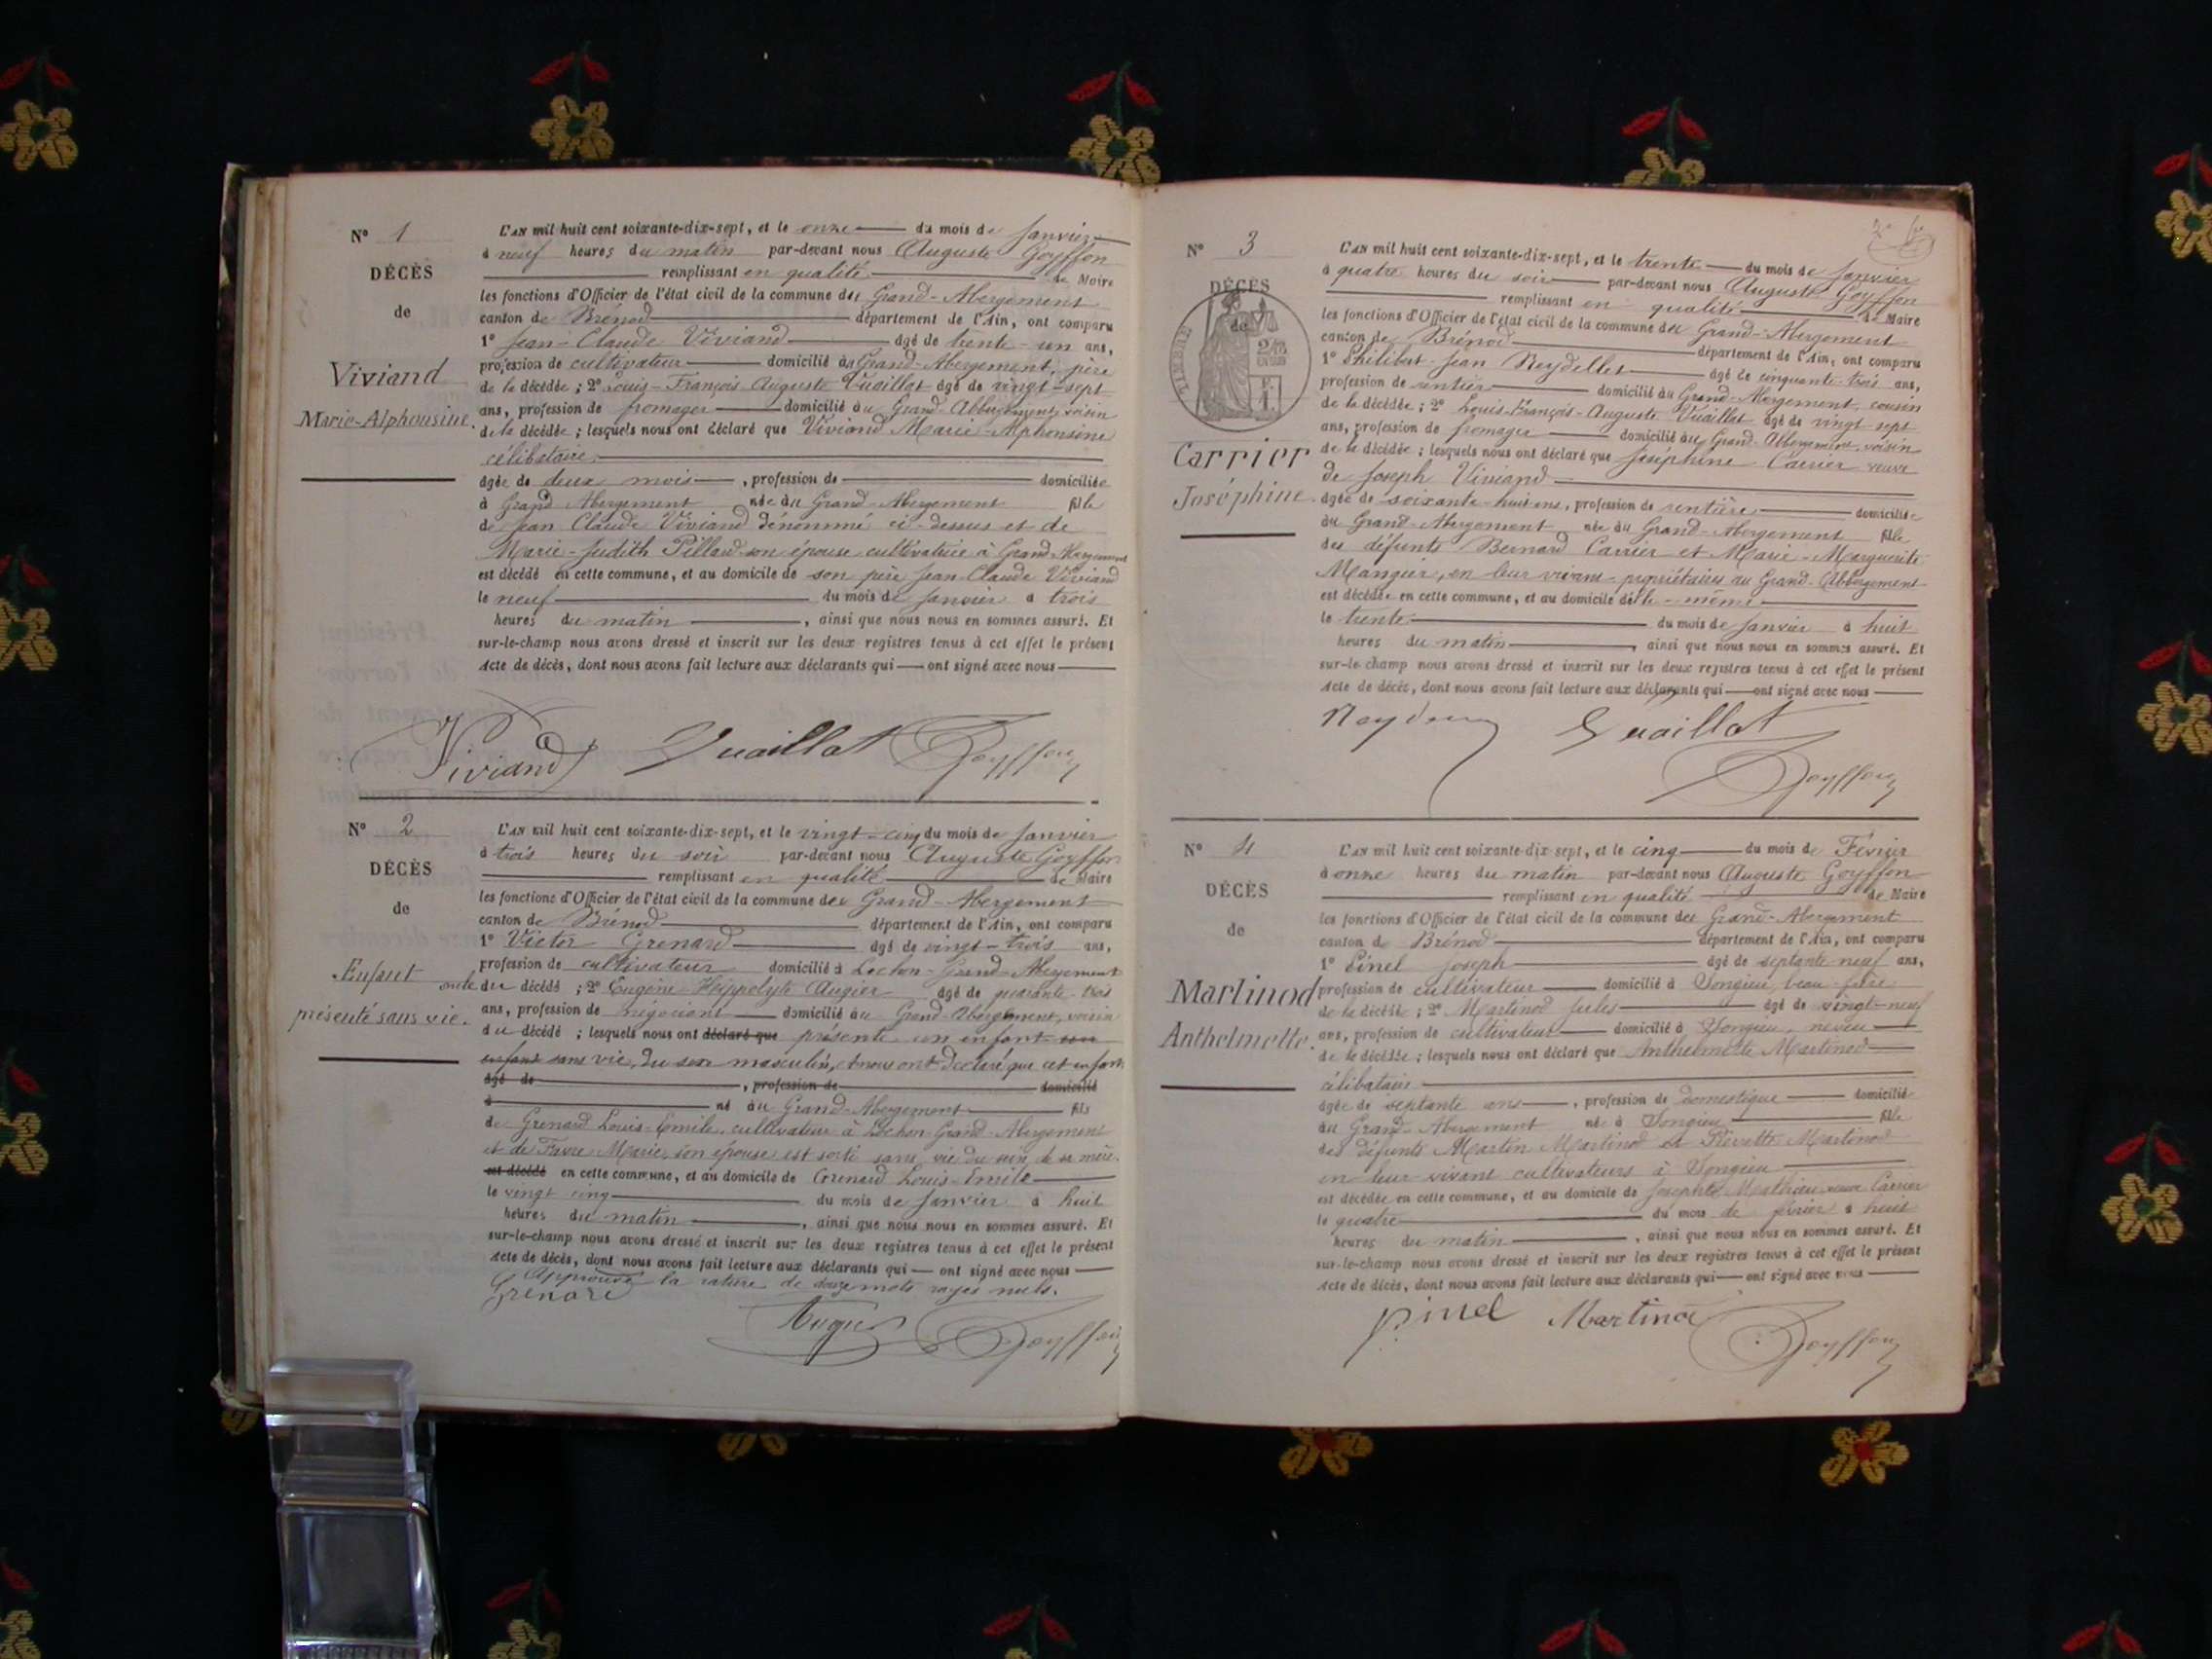 N° 1
DÉCÈS
de
Viviand
Marie-Alphonsine.
L'AN mil huit cent soixante-dix-sept, et le onze du mois de Janvier
à neuf heures du matin par-devant nous Auguste Goyffon
remplissant en qualité de Maire
les fonctions d'Officier de l'état civil de la commune du Grand-Abergement
canton de Brénod département de l'Ain, ont comparu
1° Jean-Claude Viviand âgé de trente-un ans,
profession de cultivateur domicilié au Grand-Abergement, père
de la décédée ; 2° Louis-François-Auguste Vuaillat âgé de vingt-sept
ans, profession de fromager domicilié au Grand-Abbergement, voisin
de la décédée ; lesquels nous ont déclaré que Viviand Marie-Alphonsine
célibataire
âgée de deux mois, profession de domiciliée
à Grand Abergement née au Grand-Abergement fille
de Jean Claude Viviand dénommé ci-dessus et de
Marie-Judith Pilland son épouse cultivatrice à Grand-Abergement
est décédé en cette commune, et au domicile de son père Jean-Claude Viviand
le neuf du mois de Janvier à trois
heures du matin, ainsi que nous nous en sommes assuré. Et
sur-le-champ nous avons dressé et inscrit sur les deux registres tenus à cet effet le présent
Acte de décès, dont nous avons fait lecture aux déclarants qui ont signé avec nous
Viviand Vuaillat Goyffon
N° 2
DÉCÈS
de
Enfant
présenté sans vie.
L'AN mil huit cent soixante-dix-sept, et le vingt-cinq du mois de Janvier
à trois heures du soir par-devant nous Auguste Goyffon
remplissant en qualité de Maire
les fonctions d'Officier de l'état civil de la commune de Grand-Abergement
canton de Brénod département de l'Ain, ont comparu
1° Victor Grenard âgé de vingt-trois ans,
profession de cultivateur domicilié à Lochon-Grand-Abergement
oncle du décédé ; 2° Eugène Hippolyte Augier âgé de quarante-trois
ans, profession de négociant domicilié au Grand-Abergement, voisin
du décédé ; lesquels nous ont déclaré que présenté un enfant un
enfant sans vie, du sexe masculin, et nous ont déclaré que cet enfant
âgé de, profession de domicilié
à né au Grand-Abergement fils
de Grenard Louis-Emile, cultivateur à Lochon-Grand-Abergement
et de Favre Marie, son épouse est sorti sans vie du sein de sa mère.
est décédé en cette commune, et au domicile de Grenard Louis-Emile
le vingt cinq du mois de Janvier à huit
heures du matin, ainsi que nous nous en sommes assuré. Et
sur-le-champ nous avons dressé et inscrit sur les deux registres tenus à cet effet le présent
Acte de décès, dont nous avons fait lecture aux déclarants qui ont signé avec nous
Approuvé la rature de douze mots rayés nuls.
Grenard
Augier Goyffon
N° 3
DÉCÈS
de
TIMBRE
Carrier
Joséphine.
L'AN mil huit cent soixante-dix-sept, et le trente du mois de Janvier
à quatre heures du soir par-devant nous Auguste Goyffon
remplissant en qualité de Maire
les fonctions d'Officier de l'état civil de la commune du Grand-Abergement
canton de Brénod département de l'Ain, ont comparu
1° Philibert-Jean Reydellet âgé de cinquante-trois ans,
profession de rentier domicilié au Grand-Abergement, cousin
de la décédée ; 2° Louis-François-Auguste Vuaillat âgé de vingt-sept
ans, profession de fromager domicilié au Grand-Abbergement, voisin
de la décédée ; lesquels nous ont déclaré que Joséphine Carrier veuve
de Joseph Viviand
âgée de soixante-huit ans, profession de rentière domiciliée
au Grand-Abergement née au Grand-Abergement fille
des défunts Bernard Carrier et Marie-Marguerite
Mangier, en leur vivant propriétaires au Grand-Abbergement
est décédée en cette commune, et au domicile d'elle-même
le trente du mois de Janvier à huit
heures du matin, ainsi que nous nous en sommes assuré. Et
sur-le-champ nous avons dressé et inscrit sur les deux registres tenus à cet effet le présent
Acte de décès, dont nous avons fait lecture aux déclarants qui ont signé avec nous
Vuaillat
Goyffon
N° 4
DÉCÈS
de
Martinod
Anthelmette.
L'AN mil huit cent soixante-dix-sept, et le cinq du mois de Février
à onze heures du matin par-devant nous Auguste Goyffon
remplissant en qualité de Maire
les fonctions d'Officier de l'état civil de la commune de Grand-Abergement
canton de Brénod département de l'Ain, ont comparu
1° Pinel Joseph âgé de septante-neuf ans,
profession de cultivateur domicilié à Songieu, beau-frère
de la décédée ; 2° Martinod Jules âgé de vingt-neuf
ans, profession de cultivateur domicilié à Songieu, neveu
de la décédée ; lesquels nous ont déclaré que Anthelmette Martinod
célibataire
âgée de septante ans, profession de domestique domiciliée
au Grand-Abergement née à Songieu fille
des défunts Martin Martinod et Pierrette Martinod
en leur vivant cultivateurs à Songieu
est décédée en cette commune, et au domicile de Josephte Mathieu, veuve Carrier
le quatre du mois de février à huit
heures du matin, ainsi que nous nous en sommes assuré. Et
sur-le-champ nous avons dressé et inscrit sur les deux registres tenus à cet effet le présent
Acte de décès, dont nous avons fait lecture aux déclarants qui ont signé avec nous
Pinel Martinod
Goyffon